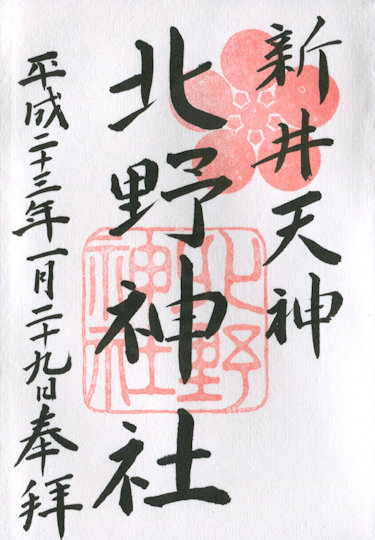 新井天神
北野神社
平成二十三年一月二十九日奉拜
北野
神社